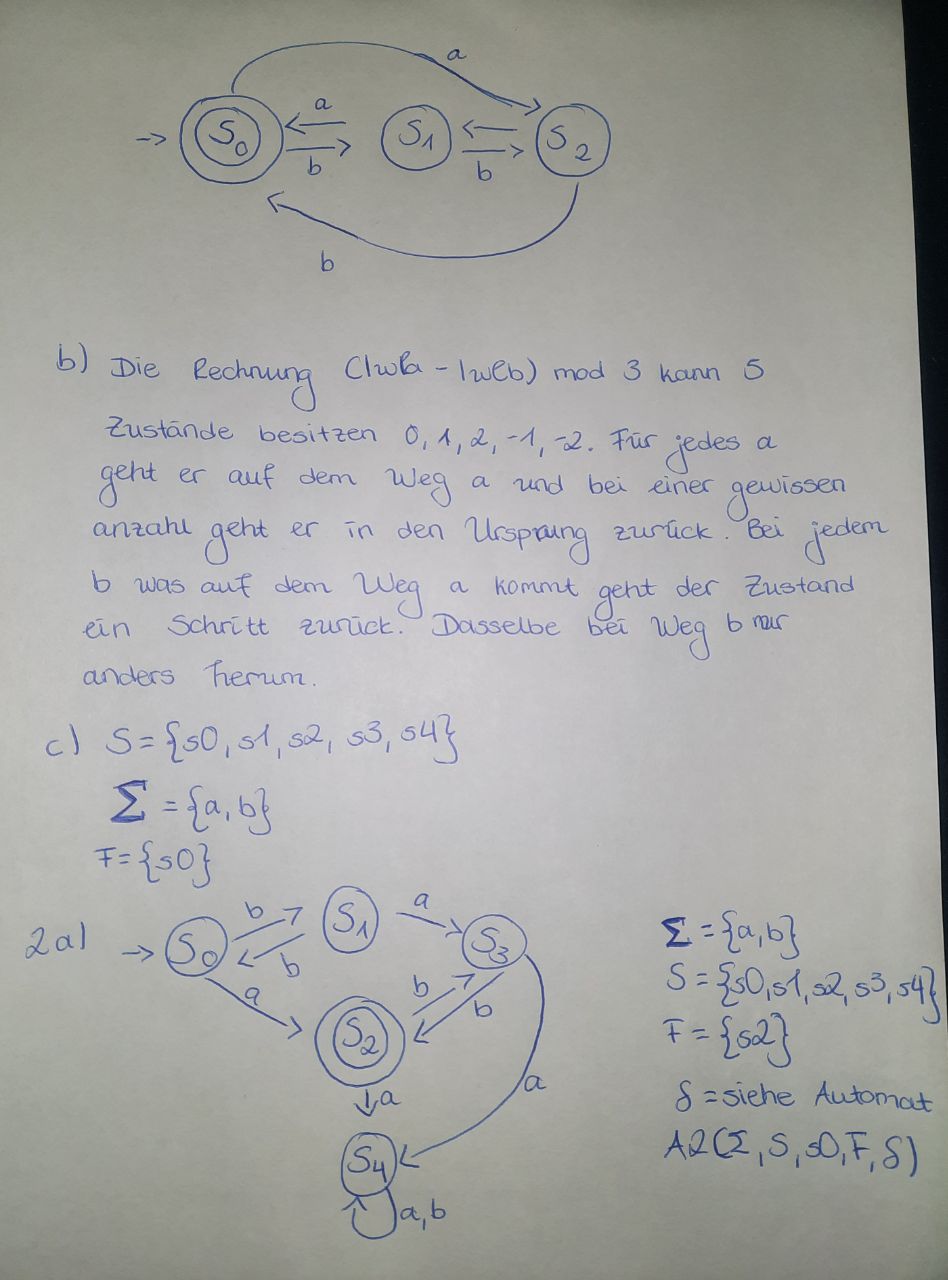 a
→ S0 a b S1 b S2
b
b) Die Rechnung (|w|a - |w|b) mod 3 kann 5
Zustände besitzen 0, 1, 2, -1, -2. Für jedes a
geht er auf dem Weg a und bei einer gewissen
anzahl geht er in den Ursprung zurück. Bei jedem
b was auf dem Weg a kommt geht der Zustand
ein Schritt zurück. Dasselbe bei Weg b nur
anders herum.
c) S = {s0, s1, s2, s3, s4}
Σ = {a, b}
F = {s0}
2a) → S0 b b S1 a S3
a S2 b b
a a
S4
a, b
Σ = {a, b}
S = {s0, s1, s2, s3, s4}
F = {s2}
δ = siehe Automat
A2(Σ, S, s0, F, δ)